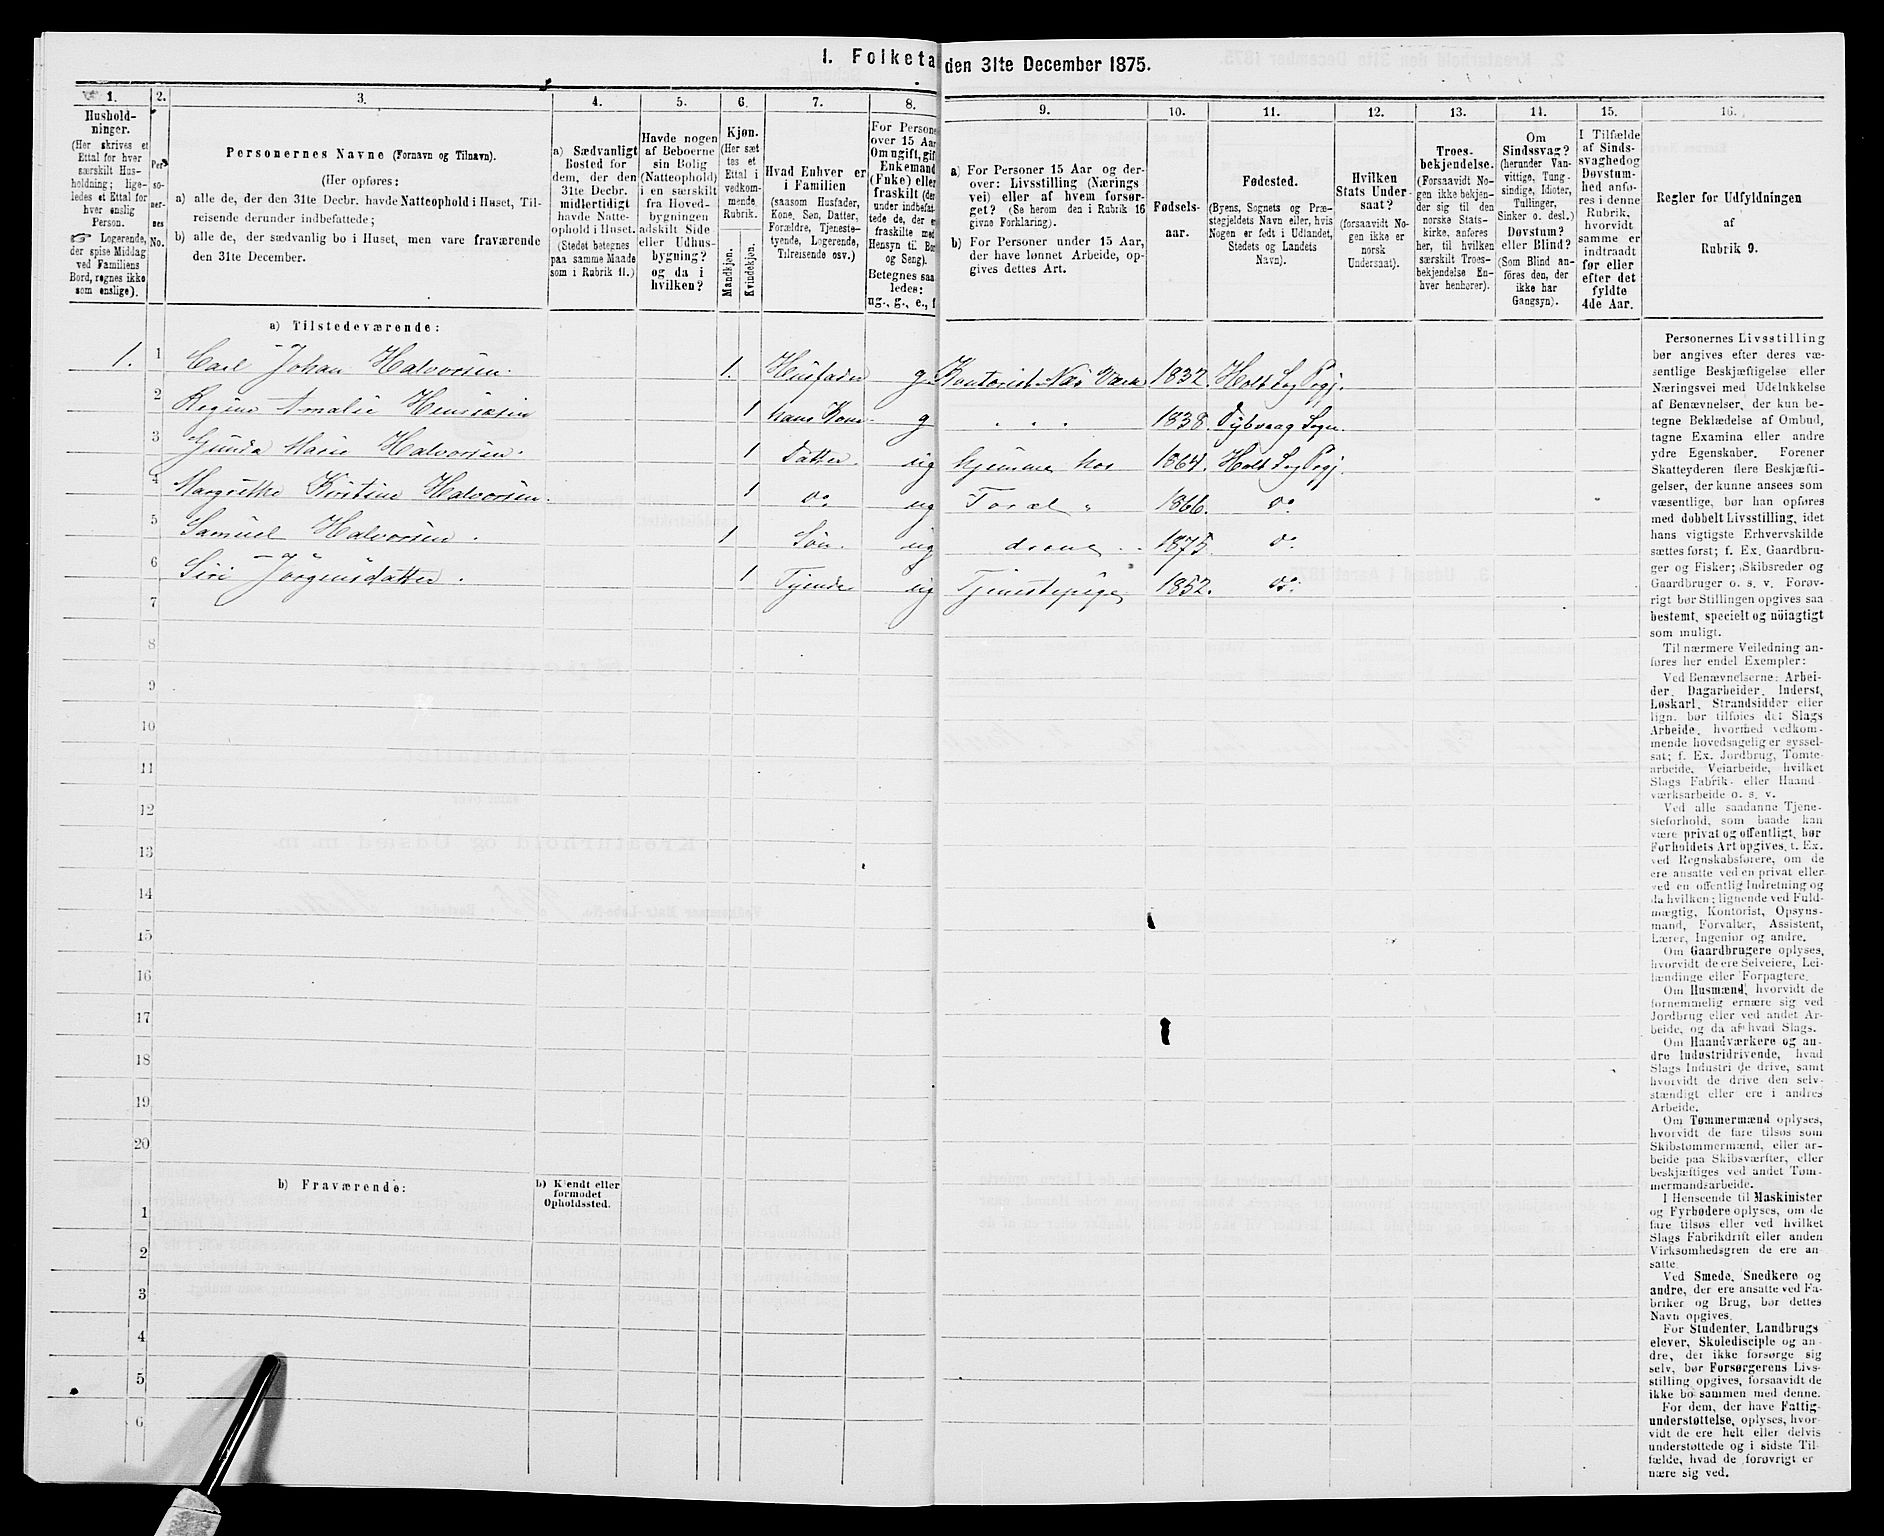 I. Folketa den 31te December 1875.
1. 2. 3. 4. 5. 6. 7. 8. 9. 10. 11. 12. 13. 14. 15. 16.
Hushold-
ninger.
(Her skrives et
Ettal for hver
særskilt Hus-
holdning; lige-
ledes et Ettal for
hver enslig
Person.
☞ Logerende,
der spise Middag
ved Familiens
Bord, regnes ikke
som enslige).
Per-
so-
ner-
nes
No.
Personernes Navne (Fornavn og Tilnavn).
(Her opføres:
a) alle de, der den 31te Decbr. havde Natteophold i Huset, Til-
reisende derunder indbefattede;
b) alle de, der sædvanlig bo i Huset, men vare fraværende
den 31te December.
a) Sædvanligt
Bosted for
dem, der den
31te Decbr.
midlertidigt
havde Natte-
ophold i Huset.
(Stedet betegnes
paa samme Maade
som i Rubrik 11.)
Havde nogen
af Beboerne
sin Bolig
(Natteophold)
i en særskilt
fra Hoved-
bygningen
adskilt Side
eller Udhus-
bygning?
og da i
hvilken?
Kjøn.
(Her sæt-
tes et
Ettal i
vedkom-
mende
Rubrik.
Mandkjøn.
Kvindekjøn.
Hvad Enhver er
i Familien
(saasom Husfader,
Kone, Søn, Datter,
Forældre, Tjeneste-
tyende, Logerende,
Tilreisende osv.)
For Persone
over 15 Aar
Om ugift, gif
Enkemand
(Enke) eller
fraskilt (der
under indbefat-
tede de, der e
fraskilte med
Hensyn til Bor
og Seng).
Betegnes saa
ledes:
ug., g., e., f
a) For Personer 15 Aar og der-
over: Livsstilling (Nærings
vei) eller af hvem forsør-
get? (Se herom den i Rubrik 16
givne Forklaring).
b) For Personer under 15 Aar,
der have lønnet Arbeide, op-
gives dettes Art.
Fødsels-
aar.
Fødested.
(Byens, Sognets og Præ-
stegjeldets Navn eller, hvis
Nogen er født i Udlandet,
Stedets og Landets
Navn).
Hvilken
Stats Under-
saat?
(forsaavidt No-
gen ikke er
norsk
Undersaat).
Troes-
bekjendelse.
(Forsaavidt No-
gen ikke bekjen-
der sig til den
norske Stats-
kirke, anføres
her, til hvilken
særskilt Troes-
bekjendelse En-
hver henhører).
Om
Sindssvag?
(herunder Van-
vittige, Tung-
sindige, Idioter,
Tullinger,
Sinker o. desl.)
Døvstum?
eller Blind?
(Som Blind an-
føres den, der
ikke har
Gangsyn).
I Tilfælde
af Sinds-
svaghed og
Døvstum-
hed anfø-
res i denne
Rubrik,
hvorvidt
samme er
indtraadt
før eller
efter det
fyldte
4de Aar.
Regler for Udfyldningen
af
Rubrik 9.
a) Tilstedeværende:
1. 1 Carl Johan Halvorsen. 1. Husfader g. Kontorist Næs Værk 1832 Holt Sog Prgj.
2 Regine Amalie Henriksen 1 hans Kone g 1838. Dybvaag Sogn.
3 Gunda Marie Halvorsen. 1 Datter ug hjemme hos 1864. Holt Sog Prgj.
4 Margrethe Kristine Halvorsen 1 do ug Foræl 1866. do
5 Samuel Halvorsen. 1 Søn. ug drene 1875 do
6 Siri Jørgensdatter. 1 Tjende ug Tjenestepige 1852. do
7
8
9
10
11
12
13
14
15
16
17
18
19
20
b) Fraværende:
b) Kjendt eller
formodet
Opholdssted.
1
2
3
4
5
6
Personernes Livsstilling
bør angives efter deres væ-
sentlige Beskjæftigelse eller
Næringsvei med Udelukkelse
af Benævnelser, der kun be-
tegne Beklædelse af Ombud,
tagne Examina eller andre
ydre Egenskaber. Forener
Skatteyderen flere Beskjæfti-
gelser, der kunne ansees som
væsentlige, bør han opføres
med dobbelt Livsstilling, idet
hans vigtigste Erhvervskilde
sættes først; f. Ex. Gaardbru-
ger og Fisker; Skibsreder og
Gaardbruger o. s. v. Forøv-
rigt bør Stillingen opgives saa
bestemt, specielt og nöiagtigt
som muligt.
Til nærmere Veiledning an-
føres her endel Exempler:
Ved Benævnelserne: Arbei-
der, Dagarbeider, Inderst,
Løskarl, Strandsidder eller
lign. bør tilføies det Slags
Arbeide, hvormed vedkom-
mende hovedsagelig er syssel-
sat; f. Ex. Jordbrug, Tomte-
arbeide, Veiarbeide, hvilket
Slags Fabrik- eller Haand-
værksarbeide o. s. v.
Ved alle saadanne Tjene-
steforhold, som baade kan
være privat og offentligt, bør
Forholdets Art opgives, t. Ex.
ved Regnskabsførere, om de
ere ansatte ved en privat eller
ved en offentlig Indretning og
da hvilken; lignende ved Fuld-
mægtig, Kontorist, Opsyns-
mand, Forvalter, Assistent,
Lærer, Ingeniør og andre.
Om Gaardbrugere oplyses,
hvorvidt de ere Selveiere, Lei-
lændinge eller Forpagtere.
Om Husmænd, hvorvidt de
fornemmelig ernære sig ved
Jordbrug eller ved andet Ar-
beide, og da af hvad Slags.
Om Haandværkere og an-
dre Industridrivende, hvad
Slags Industri de drive, samt
hvorvidt de drive den selv-
stændigt eller ere i andres
Arbeide.
Om Tømmermænd oplyses,
hvorvidt de fare tilsøs som
Skibstømmermænd, eller ar-
beide paa Skibsværfter, eller
beskjæftiges ved andet Tøm-
mermandsarbeide.
I Henseende til Maskinister
og Fyrbødere oplyses, om de
fare tilsøs eller ved hvilket
Slags Fabrikdrift eller anden
Virksomhedsgren de ere an-
satte.
Ved Smede, Snedkere og
andre, der ere ansatte ved Fa-
briker og Brug, bør dettes
Navn opgives.
For Studenter, Landbrugs
elever, Skoledisciple og an-
dre, der ikke forsørge sig
selv, bør Forsørgerens Livs-
stilling opgives, forsaavidt de
ikke bo sammen med denne.
For dem, der have Fattig-
understøttelse, oplyses, hvor-
vidt de ere helt eller delvis
understøttede og i sidste Til-
fælde, hvad de forøvrigt er
nære sig ved.